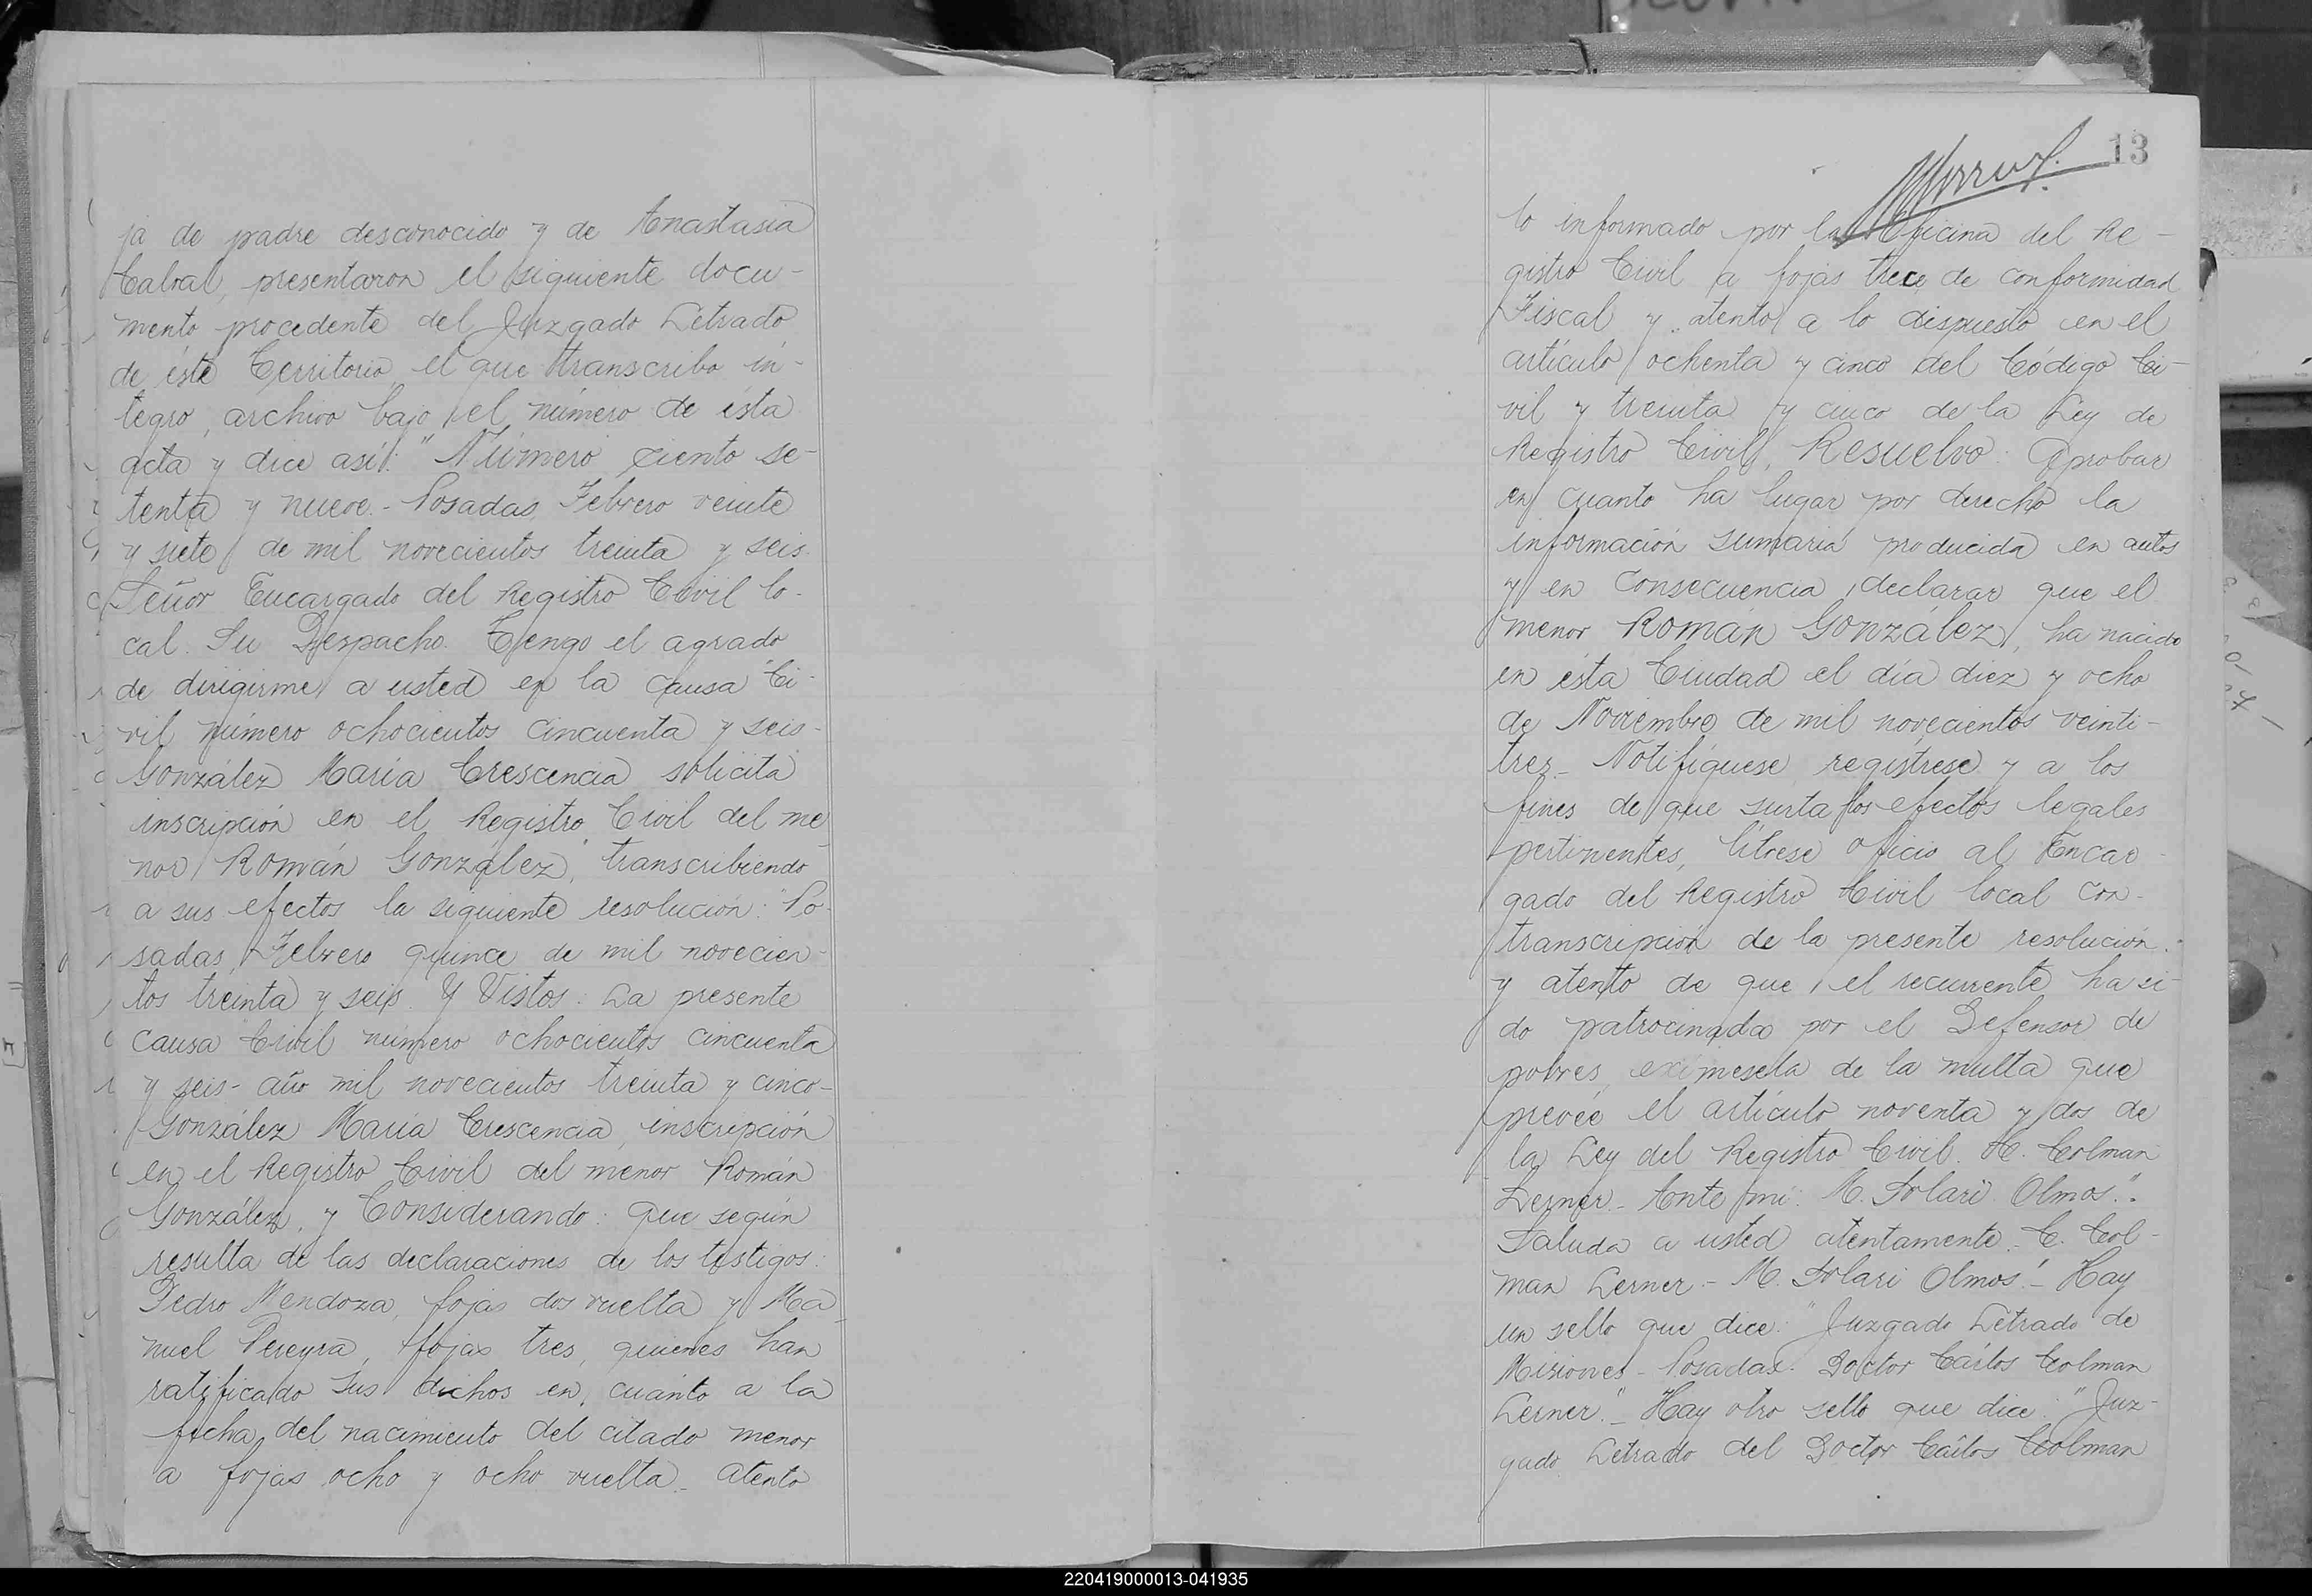 ja de padre desconocido y de Anastasia
Cabral, presentaron el siguiente docu-
mento procedente del Juzgado Letrado
de éste Territorio el que transcribo ín-
tegro, archivo bajo el número de ésta
acta y dice así: "Número ciento se-
tenta y nueve.- Posadas, Febrero veinte
y siete de mil novecientos treinta y seis.
Señor Encargado del Registro Civil lo-
cal. Su Despacho. Tengo el agrado
de dirigirme a usted en la causa Ci-
vil número ochocientos cincuenta y seis-
González María Crescencia solicita
inscripción en el Registro Civil del me
nor Román González", transcribiendo
a sus efectos la siguiente resolución: "Po-
sadas, Febrero quince de mil novecien-
tos treinta y seis. Y Vistos: La presente
causa Civil número ochocientos cincuenta
y seis- año mil novecientos treinta y cinco-
González María Crescencia, inscripción
en el Registro Civil del menor Román
González, y Considerando: Que según
resulta de las declaraciones de los testigos:
Pedro Mendoza, fojas dos vuelta y Ma-
nuel Pereyra, fojas tres, quienes han
ratificado sus dichos en cuanto a la
fecha del nacimiento del citado menor
a fojas ocho y ocho vuelta. atento
13
lo informado por la Oficina del Re-
gistro Civil a fojas trece de conformidad
Fiscal y atento a lo dispuesto en el
artículo ochenta y cinco del Código Ci-
vil y treinta y cinco de la Ley de
Registro Civil, Resuelvo: Aprobar
en cuanto ha lugar por derecho la
información sumaria producida en autos
y en consecuencia, declarar que el
menor Román González, ha nacido
en ésta Ciudad el día diez y ocho
de Noviembre de mil novecientos veinti-
tres.- Notifíquese, regístrese y a los
fines de que surta los efectos legales
pertinentes, líbrese oficio al Encar-
gado del Registro Civil local con-
transcripción de la presente resolución.
y atento de que, el recurrente ha si-
do patrocinada por el Defensor de
pobres, exímesela de la multa que
prevée el artículo noventa y dos de
la Ley del Registro Civil. C. Colman
Lerner.- Ante mí: M. Solari Olmos".
Saluda a usted atentamente.- C. Col-
man Lerner.- M. Solari Olmos".- Hay
un sello que dice: "Juzgado Letrado de
Misiones- Posadas. Doctor Cárlos Colman
Lerner".- Hay otro sello que dice: "Juz-
gado Letrado del Doctor Cárlos Colman
220419000013-041935